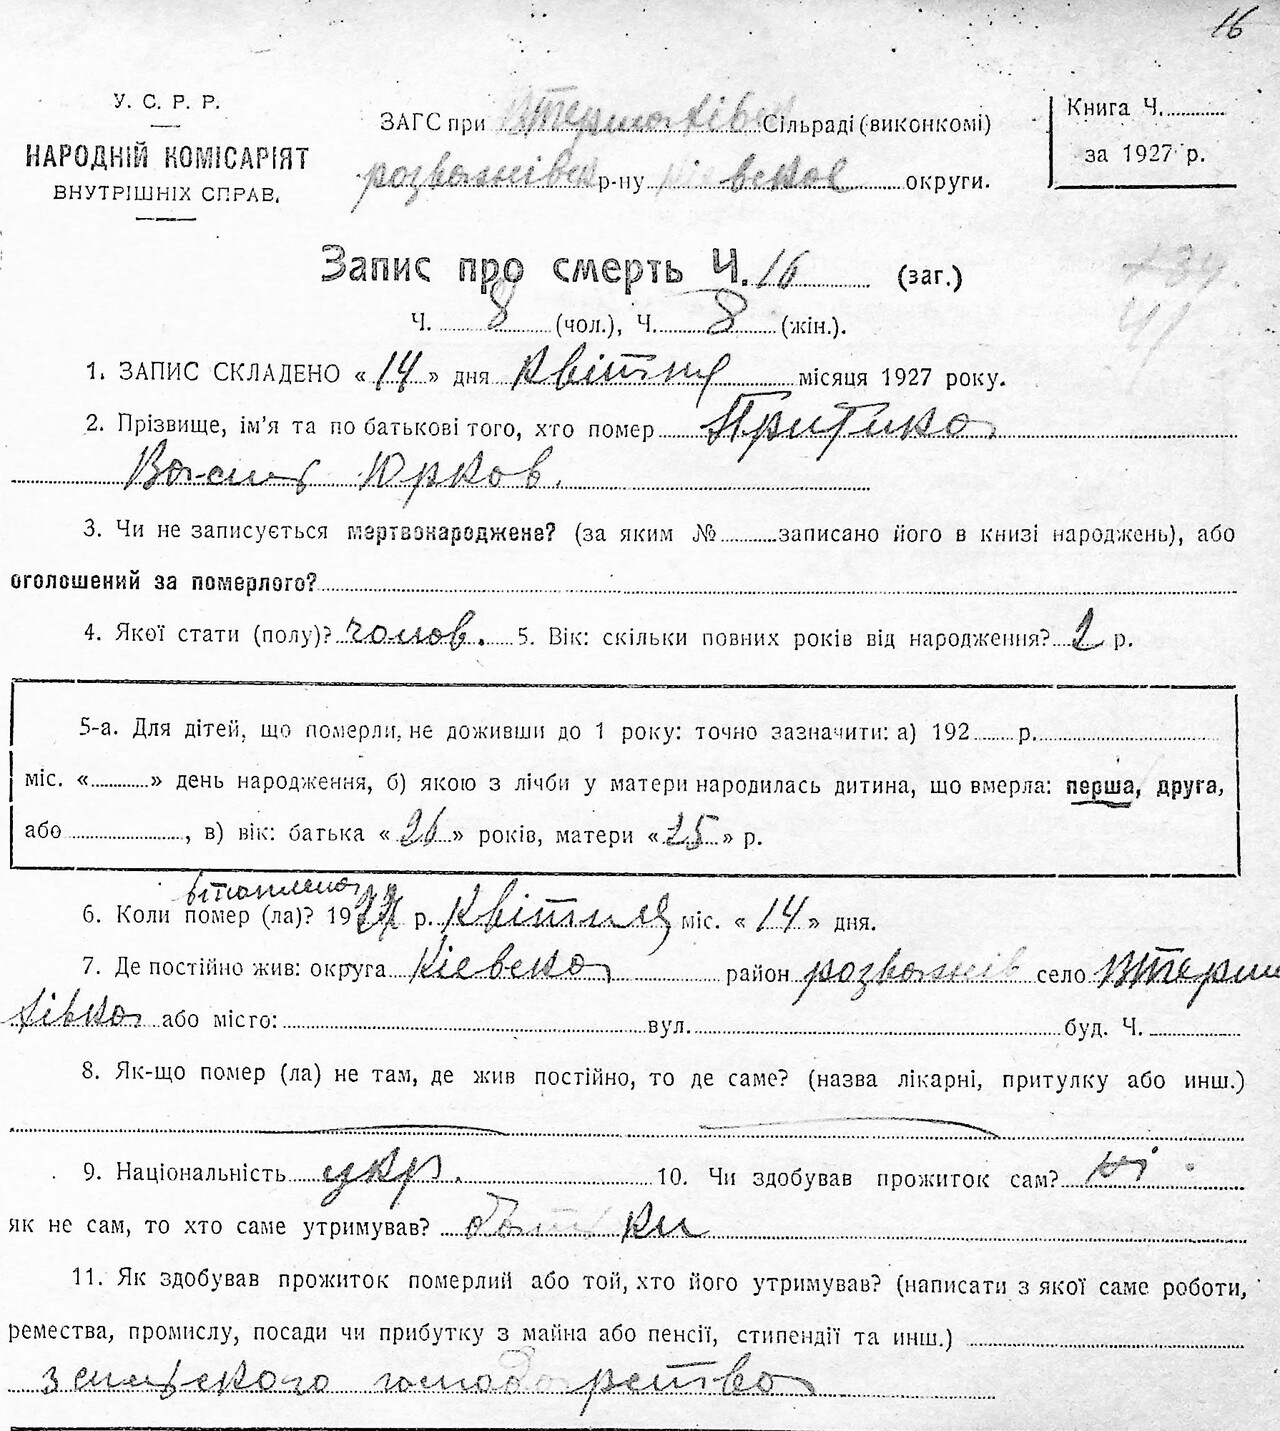 16
У. С. Р. Р.
НАРОДНІЙ КОМІСАРІЯТ
ВНУТРІШНІХ СПРАВ.
ЗАГС при Сільраді (виконкомі)
розважівск р-ну кієвскоє округи.
Книга Ч.
за 1927 р.
Запис про смерть Ч. 16 (заг.)
Ч. 8 (чол.), Ч. 8 (жін.).
41
1. ЗАПИС СКЛАДЕНО « 14 » дня Квітня місяця 1927 року.
2. Прізвище, ім'я та по батькові того, хто помер Притика
Василь Юрков.
3. Чи не записується мертвонароджене? (за яким № записано його в книзі народжень), або
оголошений за померлого?
4. Якої стати (полу)? чолов. 5. Вік: скільки повних років від народження? р.
5-а. Для дітей, що померли, не доживши до 1 року: точно зазначити: а) 192 р.
міс. « » день народження, б) якою з лічби у матери народилась дитина, що вмерла: перша, друга,
або , в) вік: батька « 26 » років, матери « 25 » р.
6. Коли помер (ла)? 1927 р. Квітня міс. « 14 » дня.
7. Де постійно жив: округа Кіевска район розважів село
або місто: вул. буд. Ч.
8. Як-що помер (ла) не там, де жив постійно, то де саме? (назва лікарні, притулку або инш.)
9. Національність укр. 10. Чи здобував прожиток сам? ні
як не сам, то хто саме утримував? батьки
11. Як здобував прожиток померлий або той, хто його утримував? (написати з якої саме роботи,
ремества, промислу, посади чи прибутку з майна або пенсії, стипендії та инш.)
з сильского господарства